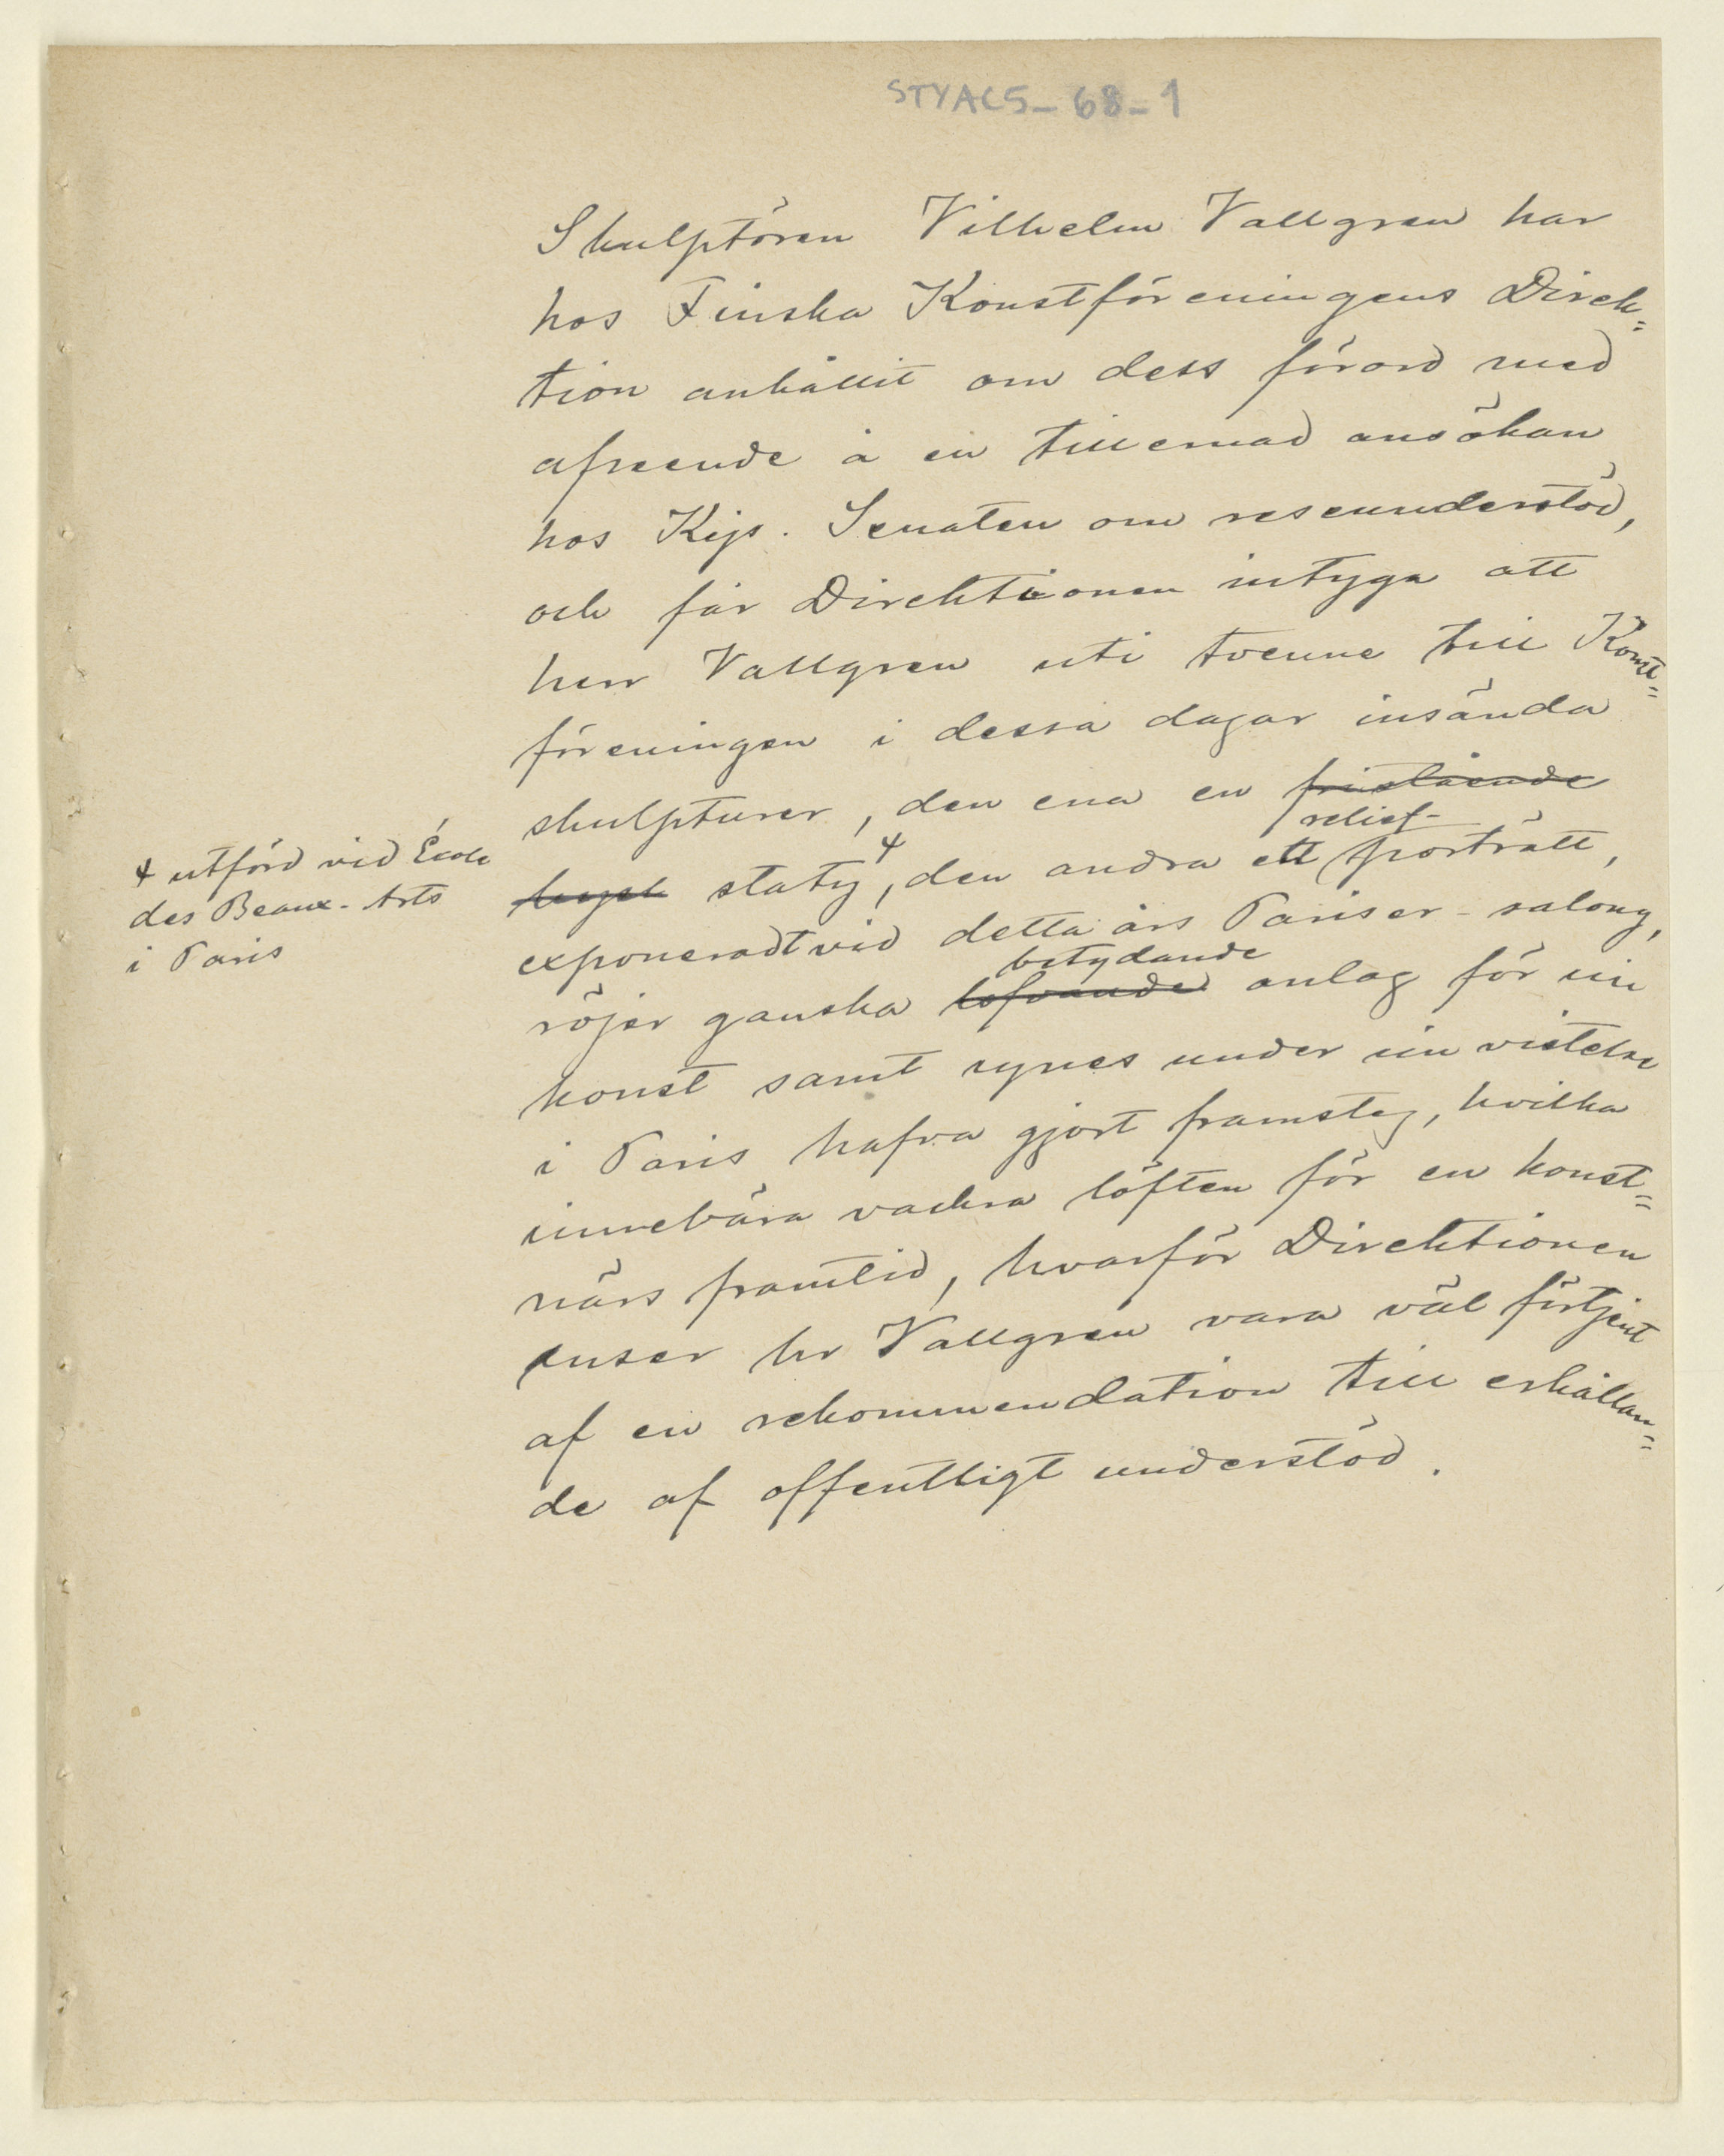 STYAC5-68-1
Skulptören Vilhelm Vallgren har
hos Finska Konstföreningens Direk=
tion anhållit om dess förord med
afseende å en tillernad ansökan
hos Kejs. Senaten om reseunderstöd,
och får Direktionen intyga att
herr Vallgren uti tvenne till Konst=
föreningen i dessa dagar insända
skulpturer, den ena en fristående
relief-
staty, den andra ett porträtt,
+ utförd vid École
des Beaux-Arts
i Paris
exponeradt vid detta års Pariser-salong,
betydande
röjer ganska lofvande anlag för sin
konst samt synes under sin vistelse
i Paris hafva gjort framsteg, hvilka
innebära vackra löften för en konst=
närs framtid, hvarför Direktionen
anser hr Vallgren vara väl förtjent
af en rekommendation till erhållan=
de af offentligt understöd.